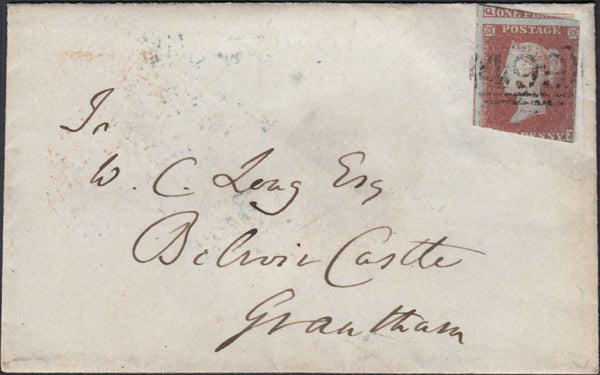 Q ONE PENNY
POSTAGE
498
PENNY
Jn
W. C. Long Esq
Belvoir Castle
Grantham